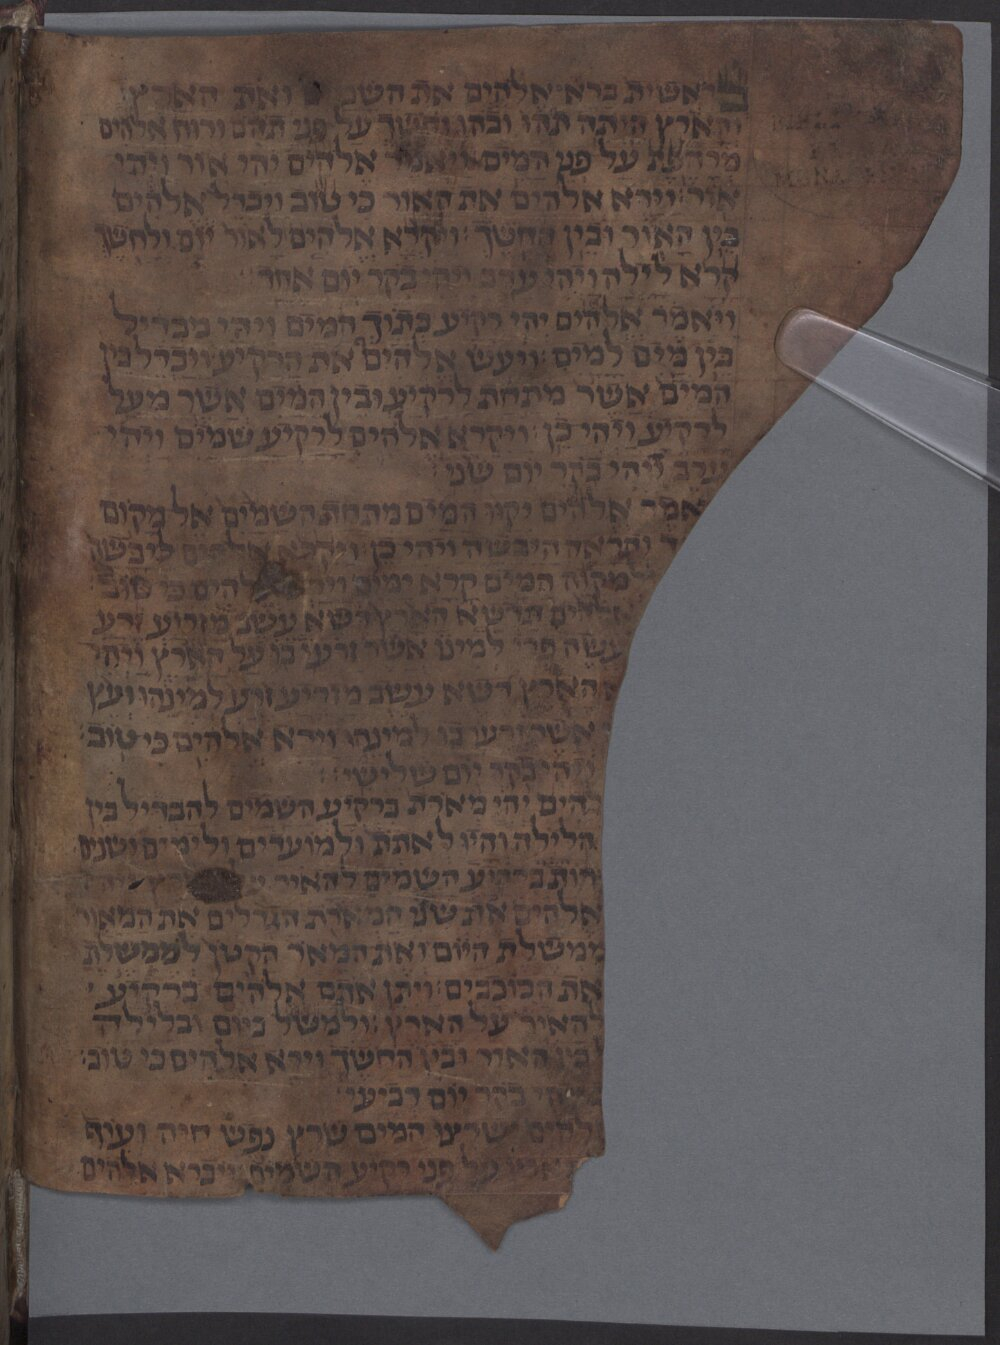 בראשית ברא אלהים את השמים ואת הארץ
והארץ היתה תהו ובהו וחשך על פני תהם ורוח אלהים
מרחפת על פני המים ויאמר אלהים יהי אור ויהי
אור וירא אלהים את האור כי טוב ויבדל אלהים
בין האור ובין החשך ויקרא אלהים לאור יום ולחשך
קרא לילה ויהי ערב ויהי בקר יום אחד
ויאמר אלהים יהי רקיע בתוך המים ויהי מבדיל
בין מים למים ויעש אלהים את הרקיע ויבדל בין
המים אשר מתחת לרקיע ובין המים אשר מעל
לרקיע ויהי כן ויקרא אלהים לרקיע שמים ויהי
ערב ויהי בקר יום שני
אמר אלהים יקוו המים מתחת השמים אל מקום
ותראה היבשה ויהי כן ויקרא אלהים ליבשה
מקוה המים קרא ימים וירא אלהים כי טוב
אלהים תדשא הארץ דשא עשב מזריע זרע
עשה פרי למינו אשר זרעו בו על הארץ ויהי
הארץ דשא עשב מזריע זרע למינהו ועץ
אשר זרעו בו למינהו וירא אלהים כי טוב
ויהי בקר יום שלישי
להים יהי מארת ברקיע השמים להבדיל בין
הלילה והיו לאתת ולמועדים ולימים ושנים
ברקיע השמים להאיר
אלהים את שני המארת הגדלים את המאור
לממשלת היום ואת המאור הקטן לממשלת
את הכוכבים ויתן אתם אלהים ברקיע
להאיר על הארץ ולמשל ביום ובלילה
בין האור ובין החשך וירא אלהים כי טוב
ויהי בקר יום רביעי
להים ישרצו המים שרץ נפש חיה ועוף
על פני רקיע השמים ויברא אלהים